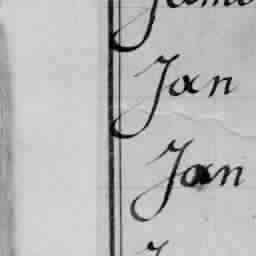 Jan
Jan